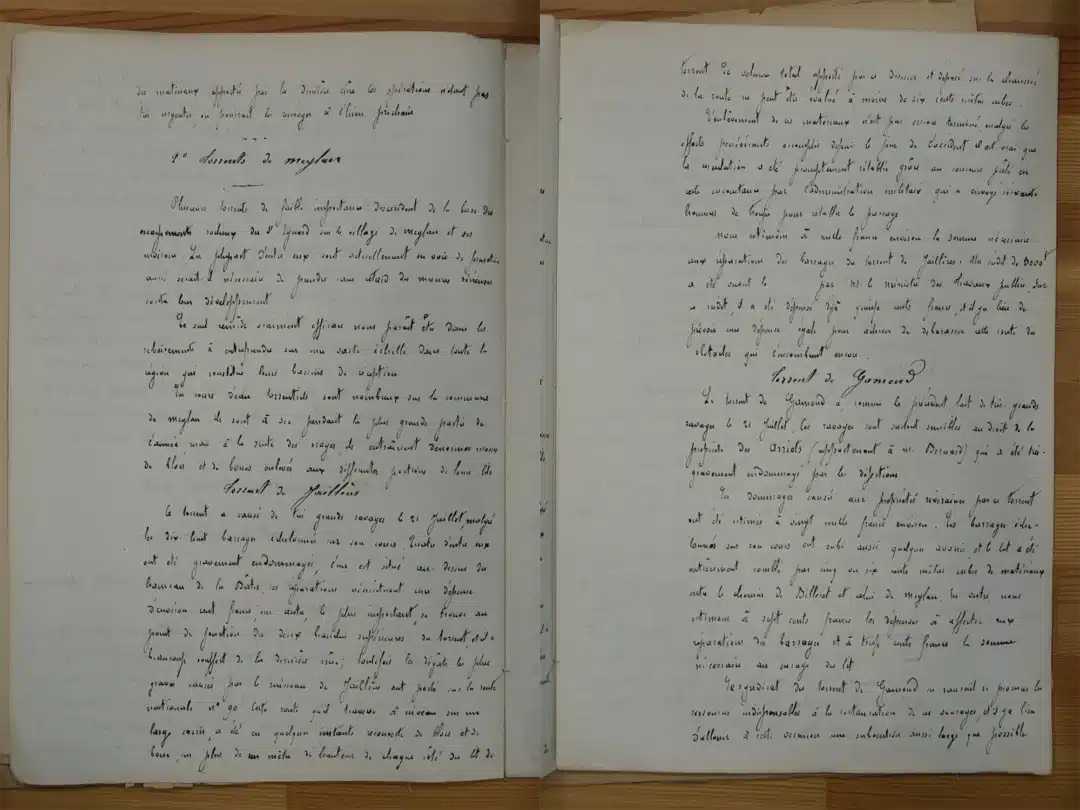 des matériaux apportés par la dernière crue ces opérations n'étant pas
très urgentes, on pourrait les renvoyer à l'hiver prochain
2° Torrents de Meylan
Plusieurs torrents de faible importance descendent de la base des
escarpements rocheux du St Eynard sur le village de Meylan et ses
environs. La plupart d'entre eux sont actuellement en voie de formation
aussi serait-il nécessaire de prendre sans retard des mesures sérieuses
contre leur développement
Le seul remède vraiment efficace nous paraît être dans les
reboisements à entreprendre sur une vaste échelle dans toute la
région qui constitue leurs bassins de réception
Les cours d'eau torrentiels sont nombreux sur la commune
de Meylan ils sont à sec pendant la plus grande partie de
l'année mais à la suite des orages, ils entraînent d'énormes masses
de blocs et de boues enlevés aux différentes parties de leurs lits
Torrent de Jaillères
Ce torrent a causé de très grands ravages le 21 Juillet, malgré
les dix-huit barrages échelonnés sur son cours. Quatre d'entre eux
ont été gravement endommagés, l'un est situé au-dessus du
hameau de la Bâtie, ses réparations nécessiteront une dépense
d'environ cent francs, un autre, le plus important, se trouve au
point de jonction des deux branches supérieures du torrent, et il a
beaucoup souffert de la dernière crue; toutefois les dégâts les plus
graves causés par le ruisseau de Jaillères ont porté sur la route
nationale n° 90 Cette route qu'il traverse à niveau sur un
large cassis, a été en quelques instants recouverte de blocs et de
boue, sur plus de un mètre de hauteur de chaque côté du lit du
torrent le volume total apporté par ce dernier et déposé sur la chaussée
de la route ne peut être évalué à moins de six cents mètres cubes.
L'enlèvement de ces matériaux n'est pas encore terminé malgré les
efforts persévérants accomplis depuis le jour de l'accident il est vrai que
la circulation a été promptement rétablie grâce au concours prêté en
cette circonstance par l'administration militaire qui a envoyé
hommes de troupe pour rétablir le passage
nous estimons à mille francs environ la somme nécessaire
aux réparations des barrages du torrent de Jaillères. Un crédit de 3000f
a été ouvert le par M. le ministre des Travaux publics, sur
ce crédit, il a été dépensé déjà quinze cents francs, et il y a lieu de
prévoir une dépense égale pour achever de débarrasser cette route des
obstacles qui l'encombrent encore.
Torrent de Gamond
Le torrent de Gamond a, comme le précédent fait de très grands
ravages le 21 Juillet, les ravages sont surtout sensibles au droit de la
propriété des Arriots (appartenant à M. Bernard) qui a été très
gravement endommagée par les déjections
Les dommages causés aux propriétés riveraines par ce torrent
ont été estimés à vingt mille francs environ. Les barrages éche-
lonnés sur son cours ont subi aussi quelques avaries, et le lit a été
entièrement comblé par cinq ou six cents mètres cubes de matériaux
entre le chemin de Billerot et celui de Meylan. En outre nous
estimons à sept cents francs les dépenses à affecter aux
réparations des barrages et à trois cents francs la somme
nécessaire au curage du lit
Le syndicat du torrent de Gamond ne saurait se procurer les
ressources indispensables à la restauration de ces ouvrages, et il y a lieu
d'allouer à cette occasion une subvention aussi large que possible